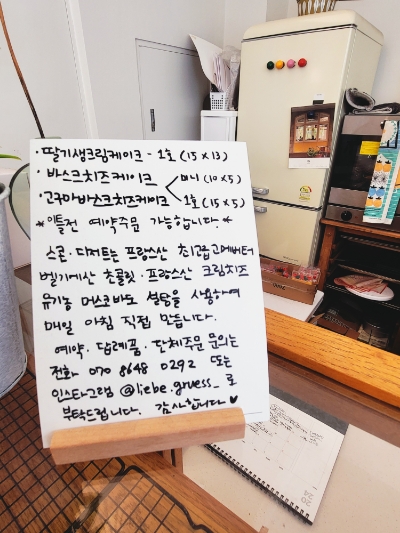 · 딸기생크림케이크 - 1호 (15 x 13)
· 바스크치즈케이크
미니 (10 x 5)
· 고구마바스크치즈케이크
1호 (15 x 5)
* 이틀전 예약주문 가능합니다. *
스콘 · 디저트는 프랑스산 최고급 고메버터
벨기에산 초콜릿 · 프랑스산 크림치즈
유기농 머스코바도 설탕을 사용하여
매일 아침 직접 만듭니다.
예약 · 답례품 · 단체주문 문의는
전화 070 8648 0292 또는
인스타그램 @liebe.gruess_ 로
부탁드립니다. 감사합니다 ♥